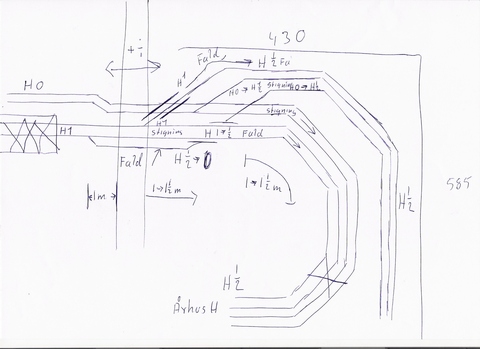 430
+ ÷
Fald H ½ Fa
H0
H1
H0→H½ stigning H0→H½
stigning
H1
H1
stigning H 1→½ Fald
Fald H½→0
1m
1→1½m
1→1½m
H½
585
H½
Århus H